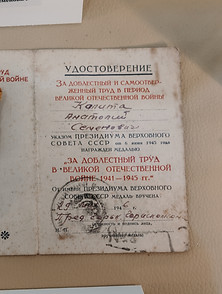 УДОСТОВЕРЕНИЕ
ЗА ДОБЛЕСТНЫЙ И САМООТВЕР-
ЖЕННЫЙ ТРУД В ПЕРИОД
ВЕЛИКОЙ ОТЕЧЕСТВЕННОЙ ВОЙНЫ
Калита
Анатолий
Семенович
УКАЗОМ ПРЕЗИДИУМА ВЕРХОВНОГО
СОВЕТА СССР от 6 июня 1945 года
НАГРАЖДЕН МЕДАЛЬЮ
„ЗА ДОБЛЕСТНЫЙ ТРУД
В ВЕЛИКОЙ ОТЕЧЕСТВЕННОЙ
ВОЙНЕ 1941—1945 гг."
От имени ПРЕЗИДИУМА ВЕРХОВНОГО
СОВЕТА СССР МЕДАЛЬ ВРУЧЕНА
194
ТРУД
ОЙ ВОЙНЕ